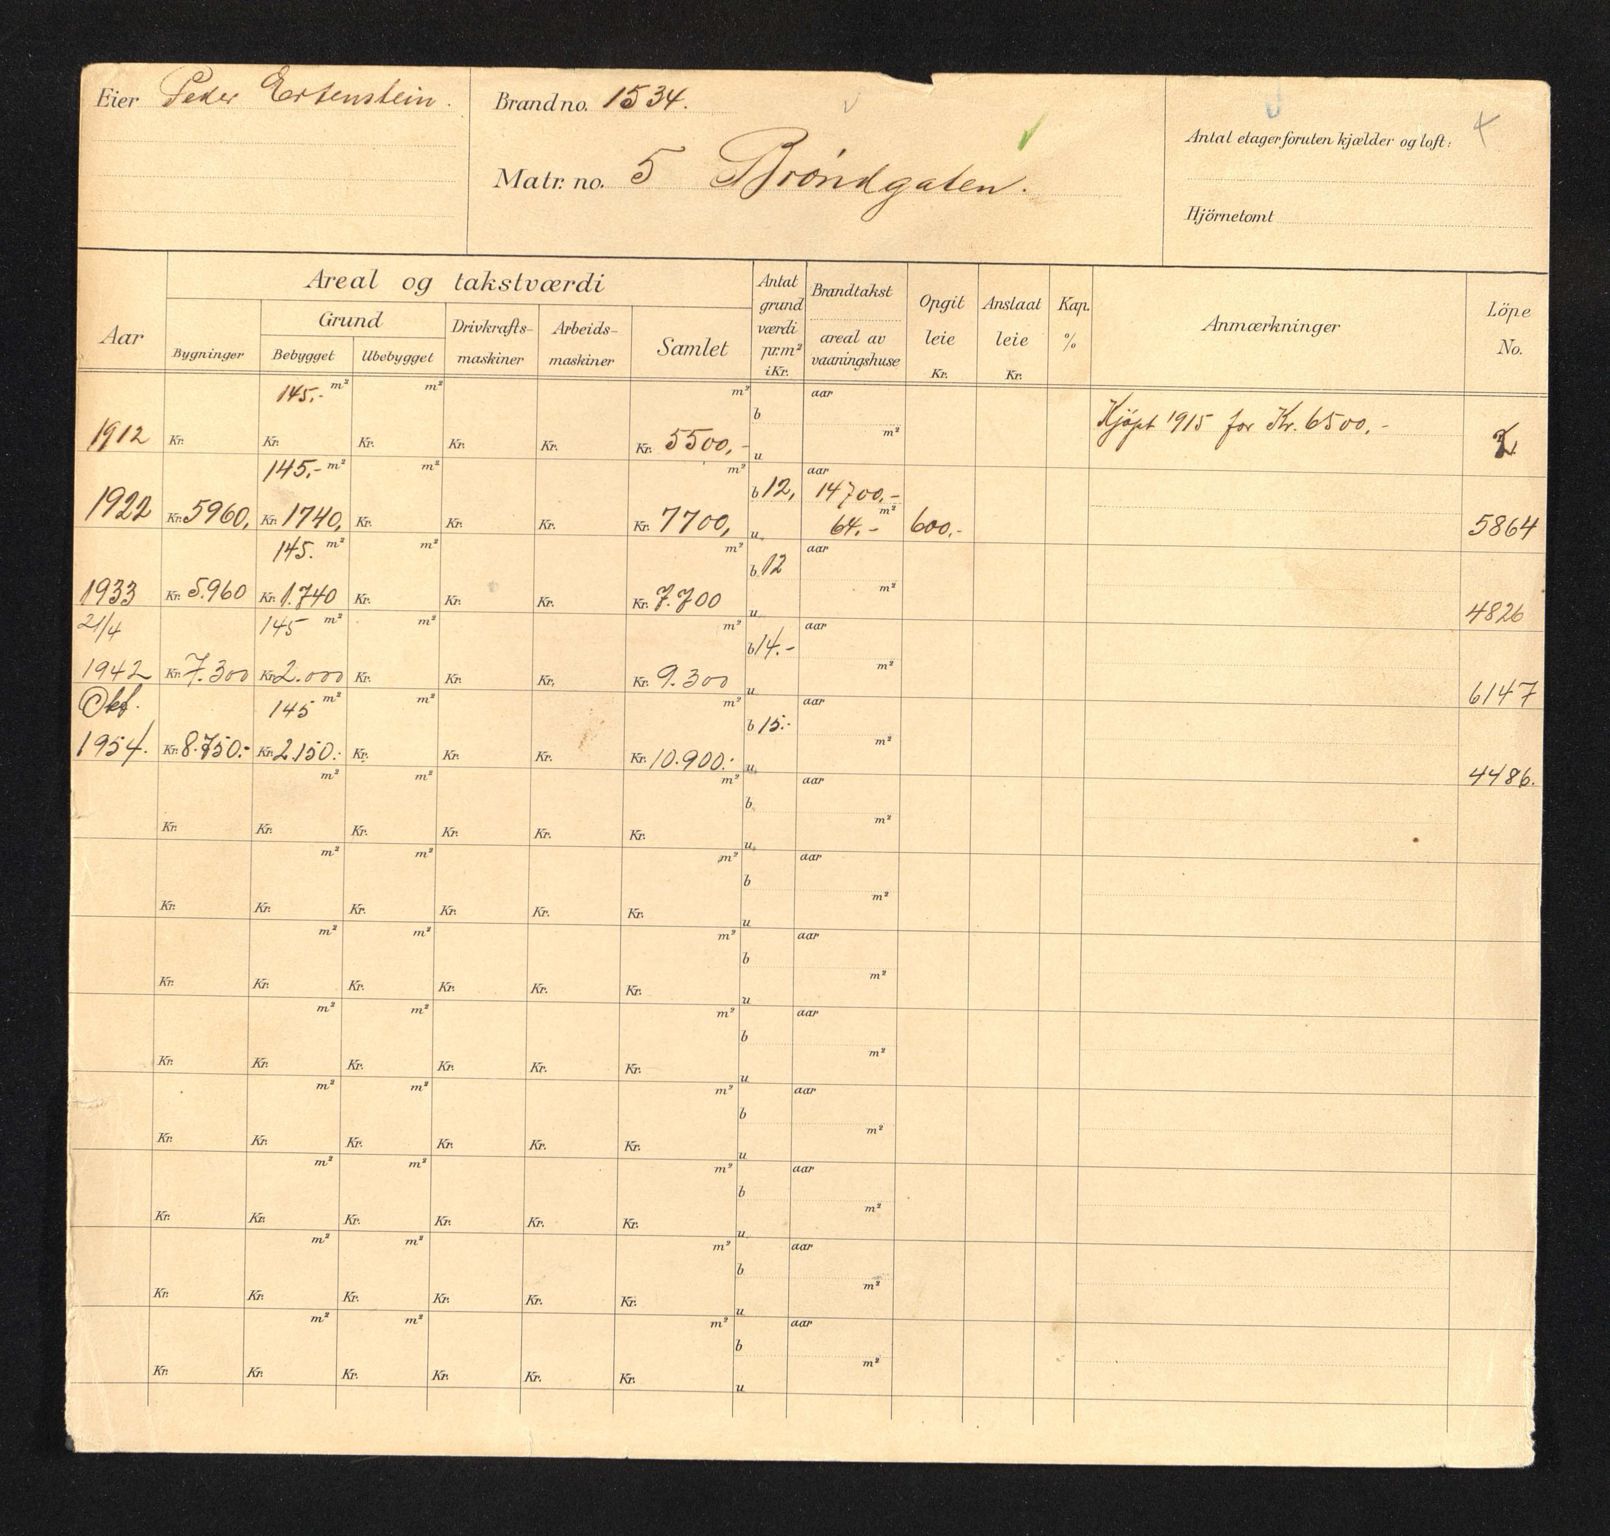 Eier Peder Ertenstein.
Brand no. 1534.
Matr. no. 5 Bröndgaten.
Antal etager foruten kjælder og loft:
Hjörnetomt
Aar
Areal og takstværdi
Bygninger
Grund
Bebygget
Ubebygget
Drivkrafts-
maskiner
Arbeids-
maskiner
Samlet
Antat
grund
værdi
pr. m²
i Kr.
Brandtakst
areal av
vaaningshuse
Opgit
leie
Kr.
Anslaat
leie
Kr.
Kap.
%
Anmærkninger
Löpe
No.
145,- m² m² m² aar
b
Kjöpt 1915 for Kr. 6500,-
1912 Kr. Kr. Kr. Kr. Kr. Kr. 5500,- u m²
145,- m² m² m² aar
b 12, 14700,-
1922 Kr. 5960, Kr. 1740, Kr. Kr. Kr. Kr. 7700, u m² 64,- 600,- 5864
145. m² m² m² aar
b 12
1933 Kr. 5.960 Kr. 1.740 Kr. Kr. Kr. Kr. 7.700 u m² 4826
21/4 145 m² m² m² aar
b 14.-
1942 Kr. 7.300 Kr. 2.000 Kr. Kr. Kr. Kr. 9.300 u m² 6147
Okt. 145 m² m² m² aar
b 15.-
1954. Kr. 8.750.- Kr. 2.150.- Kr. Kr. Kr. Kr. 10.900.- u m² 4486.
m² m² m² aar
b
Kr. Kr. Kr. Kr. Kr. Kr. u m²
m² m² m² aar
b
Kr. Kr. Kr. Kr. Kr. Kr. u m²
m² m² m² aar
b
Kr. Kr. Kr. Kr. Kr. Kr. u m²
m² m² m² aar
b
Kr. Kr. Kr. Kr. Kr. Kr. u m²
m² m² m² aar
b
Kr. Kr. Kr. Kr. Kr. Kr. u m²
m² m² m² aar
b
Kr. Kr. Kr. Kr. Kr. Kr. u m²
m² m² m² aar
b
Kr. Kr. Kr. Kr. Kr. Kr. u m²
m² m² m² aar
b
Kr. Kr. Kr. Kr. Kr. Kr. u m²